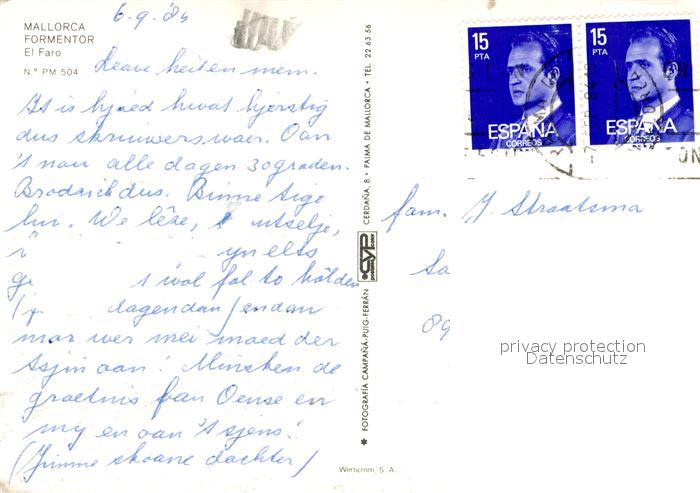 MALLORCA
FORMENTOR
El Faro
N.º PM 504
6-9-'84
Leave heit en mem.
It is hjoed hwat hjerstig
dus skriuwerswaer. Oan
't nou alle dagen 30 graden.
Broeierich dus. Binne tige
lui. We lêze,
yn elts
wol fol to hâlden
dagen dan / en dan
mar wer mei moed der
tsjin oan! Minsken de
groetnis fan Oense en
my en oan 't sjens!
(Jimme skoane dochter)
fam. J. Straatsma
89
15
PTA
ESPAÑA
CORREOS
15
PTA
ESPAÑA
CORREOS
✱ FOTOGRAFÍA CAMPAÑÁ-PUIG-FERRÁN
CYP
CERDAÑA, 8 • PALMA DE MALLORCA • TEL. 22 63 56
Werticrom, S. A.
privacy protection
Datenschutz